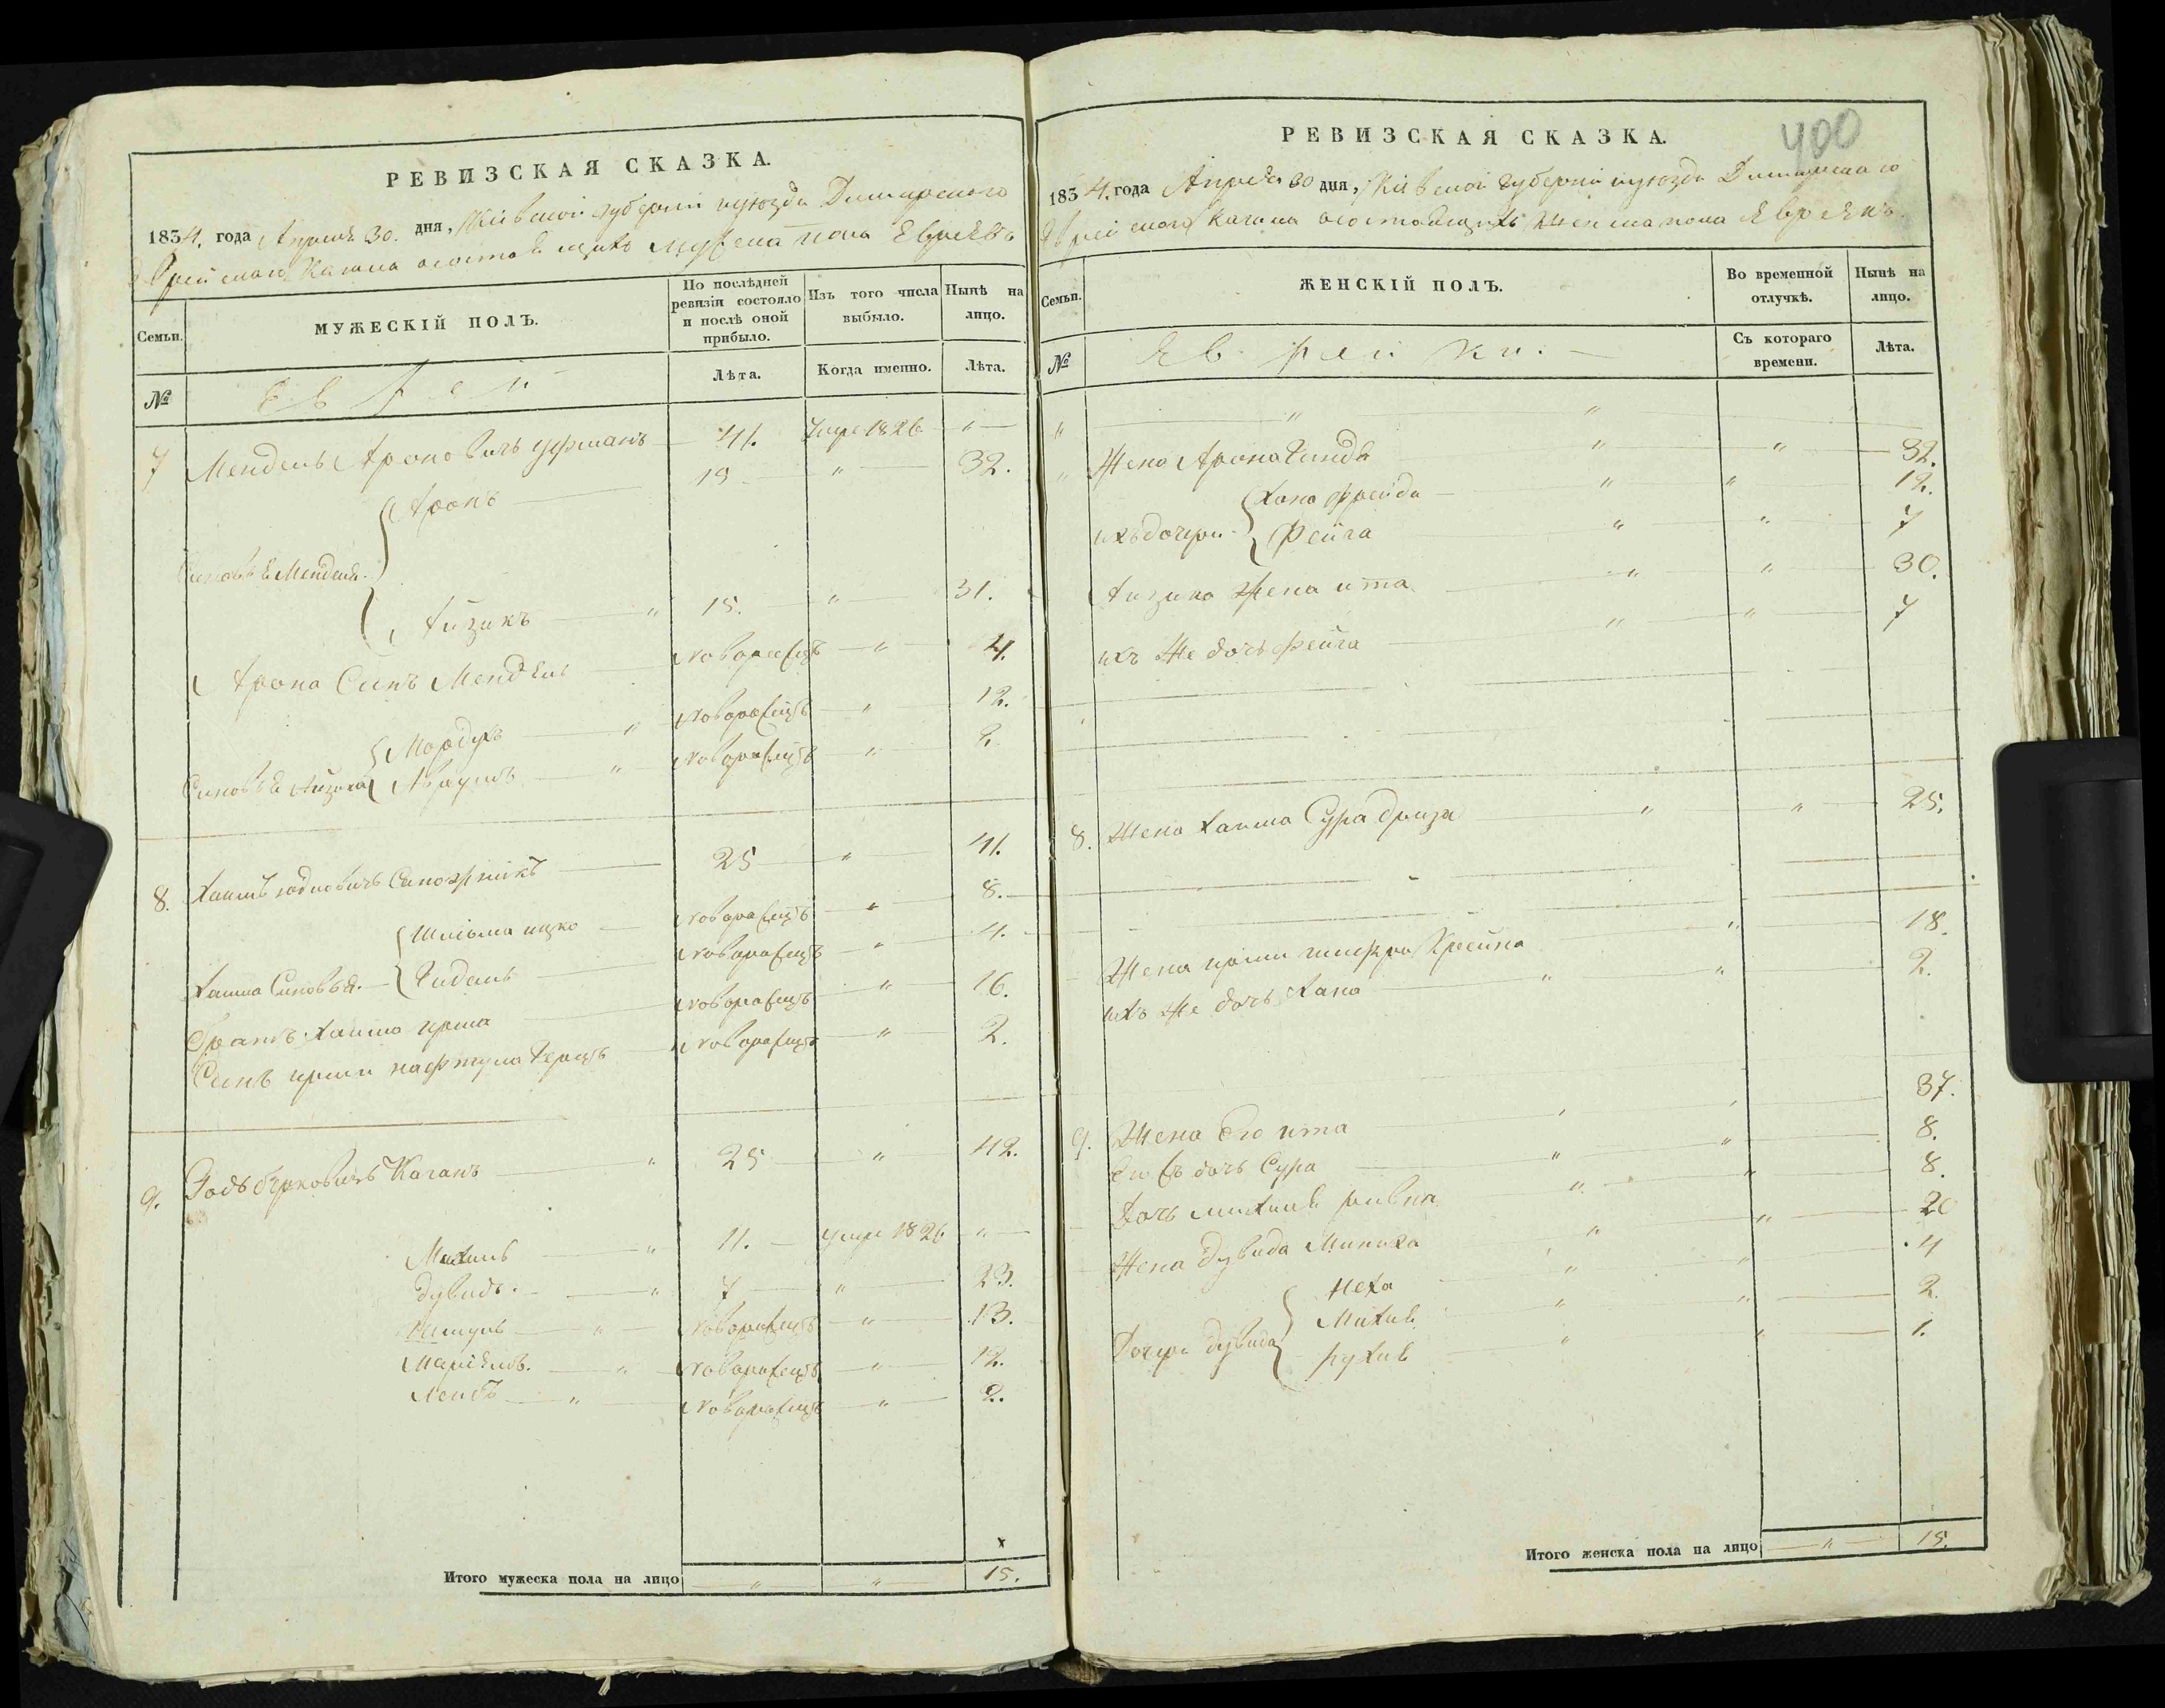 РЕВИЗСКАЯ СКАЗКА.
1834. года Апреля 30. дня, Кіевской губерніи и уезда Дымерского
Еврейскаго Кагала о состоящихъ мужеска пола Евреевъ
Семьи.
МУЖЕСКІЙ ПОЛЪ.
По послѣдней ревизіи состояло и послѣ оной прибыло.
Изъ того числа выбыло.
Нынѣ на лицо.
№
Евреи
Лѣта.
Когда именно.
Лѣта.
7 Мендель Ароновичъ 41. Умре 1826 "
Аронъ 19 " 32.
Сыновья Менделя
Айзикъ " 15. " 31.
Арона Сынъ Мендель новорожденъ " 4.
Мордухъ " новорожденъ " 12.
Сыновья Айзика Аврумъ " новорожденъ " 2
8. Хаимъ Сапожникъ 25 " 41.
Шліома ицко новорожденъ " 8.
Хаима Сыновья Гидаль новорожденъ " 4.
Братъ Хаима ирша новорожденъ " 16.
Сынъ ирши нафтула Герцъ новорожденъ " 2.
9. Берковичъ Каганъ " 25 " 42.
Михель " 11. умре 1826 "
Дувидъ. " 7 " 23.
Шмуль " новорожденъ " 13.
" новорожденъ " 12.
Лейбъ " новорожденъ " 2.
Итого мужеска пола на лицо " " 15.
400
РЕВИЗСКАЯ СКАЗКА.
1834. года Апреля 30 дня, Кіевской Губерніи и уезда Дымерскаго
Еврейскаго Кагала о состоящихъ женска пола Евреекъ.
Семьи.
ЖЕНСКІЙ ПОЛЪ.
Во временной отлучкѣ.
Нынѣ на лицо.
№
Еврейки.
Съ котораго времени.
Лѣта.
" " "
" Жена Арона Гинда " " 32.
Хана фрейда " " 12.
ихъ дочери Фейга " " 7
Айзика Жена ита " " 30.
ихъ же дочь Фейга " " 7
8. Жена Хаима Сура " " 25.
Жена ирши шифра Крейна " 18.
ихъ же дочь Хана " " 2.
9. Жена его ита " " 37.
дочь Сура " " 8.
Дочь михеля ривка " " 8.
Жена Дувида " " 20
Неха " " 4
" " 2.
Дочери Дувида " " 1.
Итого женска пола на лицо " 15.